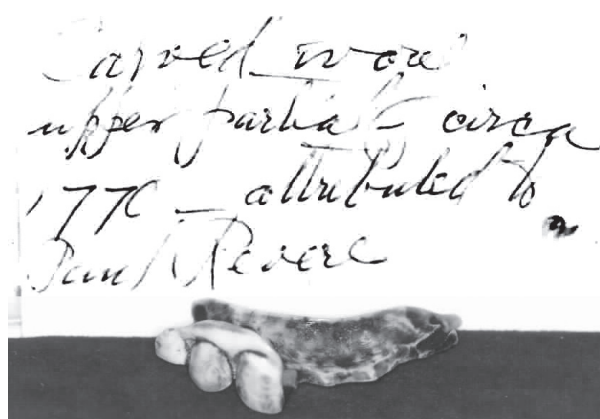 Carved ivory
upper partial – circa
1770 – attributed to
Paul Revere